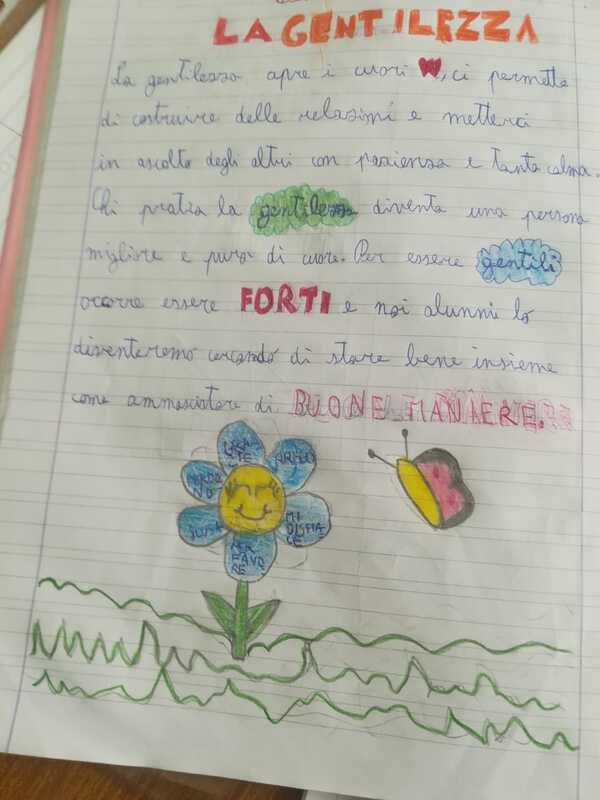 LA GENTILEZZA
La gentilezza apre i cuori, ci permette
di costruire delle relazioni e metterci
in ascolto degli altri con pazienza e tanta calma.
Chi pratica la gentilezza diventa una persona
migliore e pura di cuore. Per essere gentili
occorre essere FORTI e noi alunni lo
diventeremo cercando di stare bene insieme
come ammasciatore di BUONE MANIERE.
GRA-
ZIE
SCUSA
MI
DISPIA
CE
PER
FAVO
RE